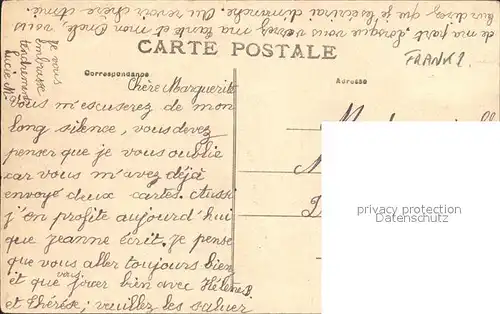 CARTE POSTALE
Correspondance
Adresse
FRANK 2.
Chère Marguerite
Vous m'escuserez de mon
long silence, vous devez
penser que je vous oublie
car vous m'avez déjà
envoyé deux cartes. Aussi
j'en profite aujourd'hui
que Jeanne écrit. Je pense
que vous aller toujours bien
et que vous jouer bien avec Hélène
et Thérèse; veuillez les saluer
de ma part. Lorsque vous verrez ma tante et mon Oncle, vous
leur direz que je les écrirai dimanche. Au revoir chère Amie.
Je vous
embrasse
tendrement
Lucie M.
privacy protection
Datenschutz